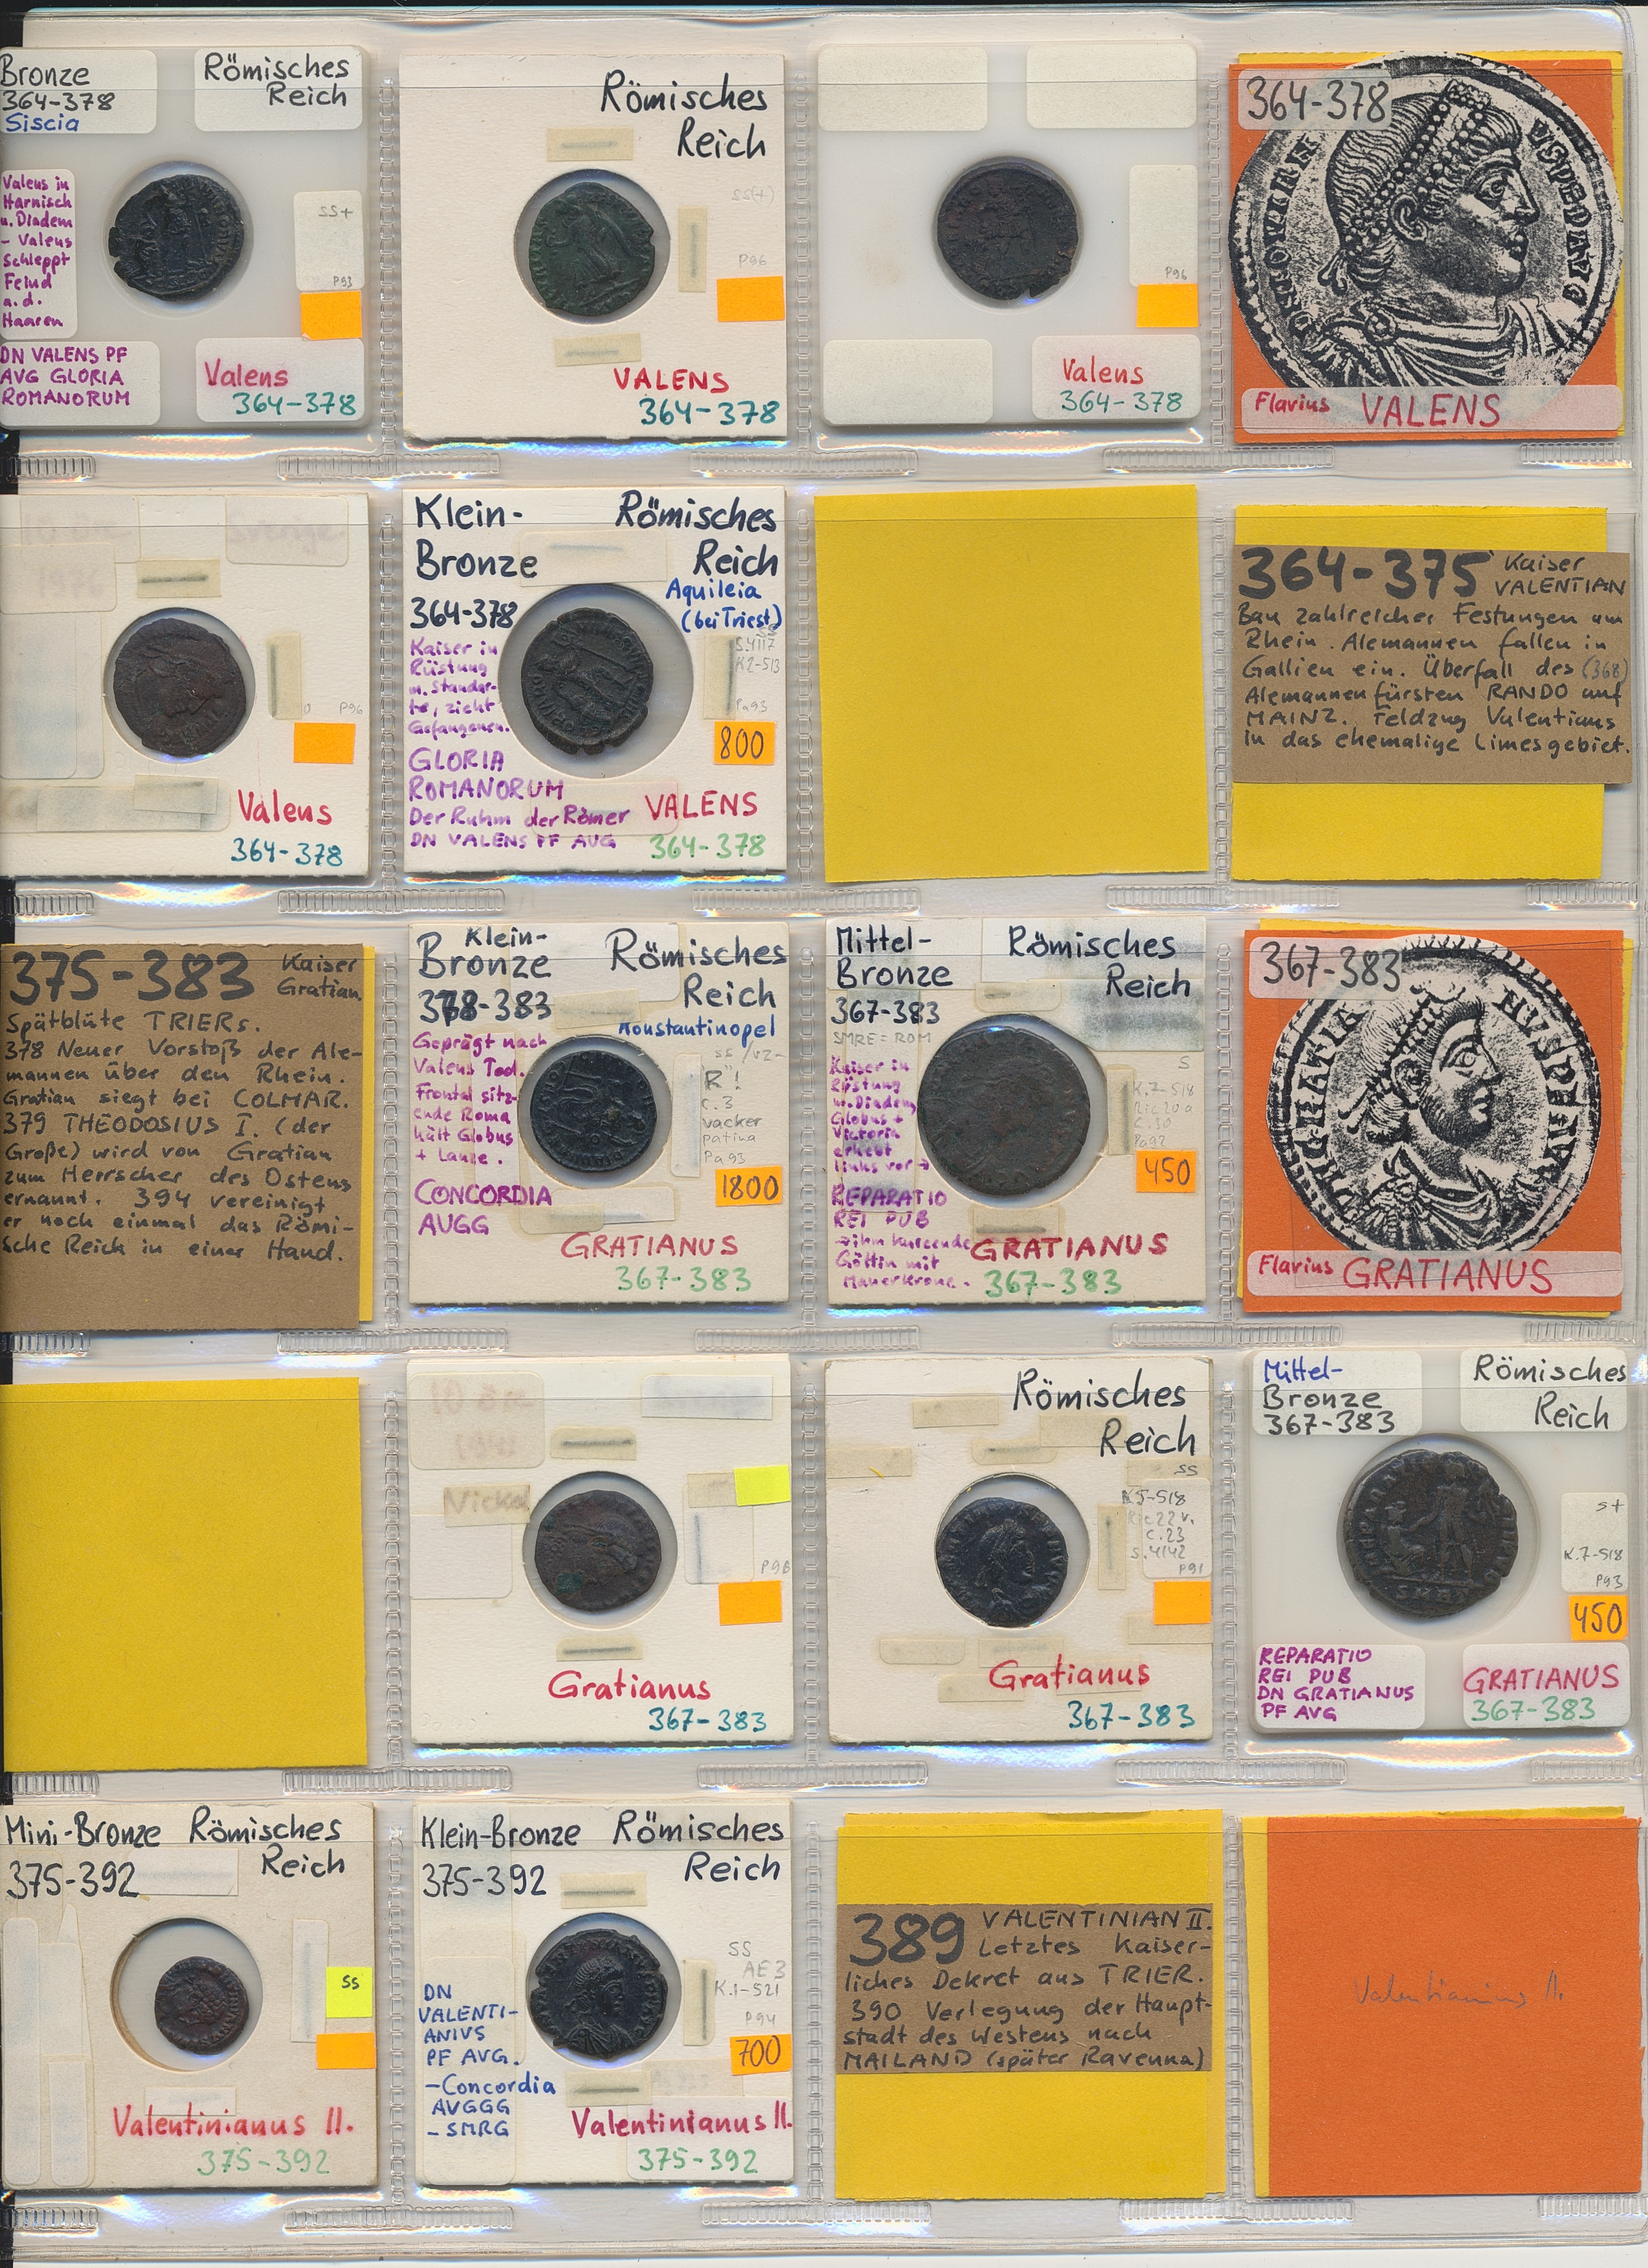 Bronze
364-378
Siscia
Römisches
Reich
Valens in
Harnisch
u. Diadem
- Valens
schleppt
Feind
a. d.
Haaren
SS+
P93
DN VALENS PF
AVG GLORIA
ROMANORUM
Valens
364-378
Römisches
Reich
SS(+)
P96
VALENS
364-378
P96
Valens
364-378
364-378
Flavius VALENS
P96
Valens
364-378
Klein-
Bronze
364-378
Römisches
Reich
Aquileia
(bei Triest)
S.4117
K2-513
Pa93
Kaiser in
Rüstung
m. Standar-
te, zieht
Gefangenen.
800
GLORIA
ROMANORUM
Der Ruhm der Römer
DN VALENS PF AUG
VALENS
364-378
364-375 Kaiser
VALENTIAN
Bau zahlreicher Festungen am
Rhein. Alemannen fallen in
Gallien ein. Überfall des (368)
Alemannenfürsten RANDO auf
MAINZ. Feldzug Valentians
in das ehemalige Limesgebiet.
375-383 Kaiser
Gratian.
Spätblüte TRIERs.
378 Neuer Vorstoß der Ale-
mannen über den Rhein.
Gratian siegt bei COLMAR.
379 THEODOSIUS I. (der
Große) wird von Gratian
zum Herrscher des Ostens
ernannt. 394 vereinigt
er noch einmal das Römi-
sche Reich in einer Hand.
Klein-
Bronze
378-383
Römisches
Reich
Konstantinopel
Geprägt nach
Valens Tod.
Frontal sitz-
ende Roma
hält Globus
+ Lanze.
ss/vz-
R!
C.3
wacker
patina
Pa93
1800
CONCORDIA
AUGG
GRATIANUS
367-383
Mittel-
Bronze
367-383
SMRE = ROM
Römisches
Reich
Kaiser in
Rüstung
m. Diadem
Globus +
Victoria
erhebt
links vor →
S
K.7-518
C.30
Pa92
450
REPARATIO
REI PUB
→ ihm knieende
Göttin mit
Mauerkrone.
GRATIANUS
367-383
367-383
Flavius GRATIANUS
10 öre
Nickel
P96
Gratianus
367-383
Römisches
Reich
SS
K5-518
Ric22v.
C.23
S.4142
P91
Gratianus
367-383
Mittel-
Bronze
367-383
Römisches
Reich
S+
K.7-518
P93
450
REPARATIO
REI PUB
DN GRATIANUS
PF AVG
GRATIANUS
367-383
Mini-Bronze
375-392
Römisches
Reich
SS
Valentinianus II.
375-392
Klein-Bronze
375-392
Römisches
Reich
SS
AE3
K.1-521
P94
700
DN
VALENTI-
ANIVS
PF AVG.
-Concordia
AVGGG
- SMRG
Valentinianus II.
375-392
389 VALENTINIAN II.
Letztes Kaiser-
liches Dekret aus TRIER.
390 Verlegung der Haupt-
stadt des Westens nach
MAILAND (später Ravenna)
Valentinianus II.